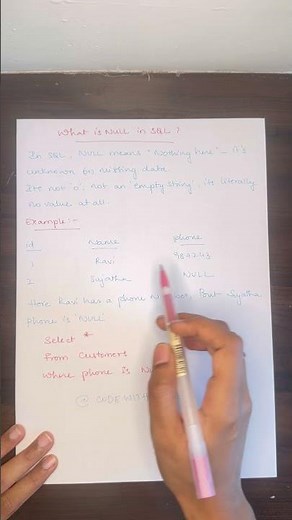 What is NULL in SQL?
In SQL, NULL means "Nothing here" - it's
unknown or missing data.
It's not 'o', not an 'empty string', it's literally
no value at all.
Example:-
id Name phone
1 Ravi 982243
2 Sujatha NULL
Here Ravi has a phone but Sujatha
phone is 'NULL'
Select *
from Customers
where phone is
@ CODEWITH